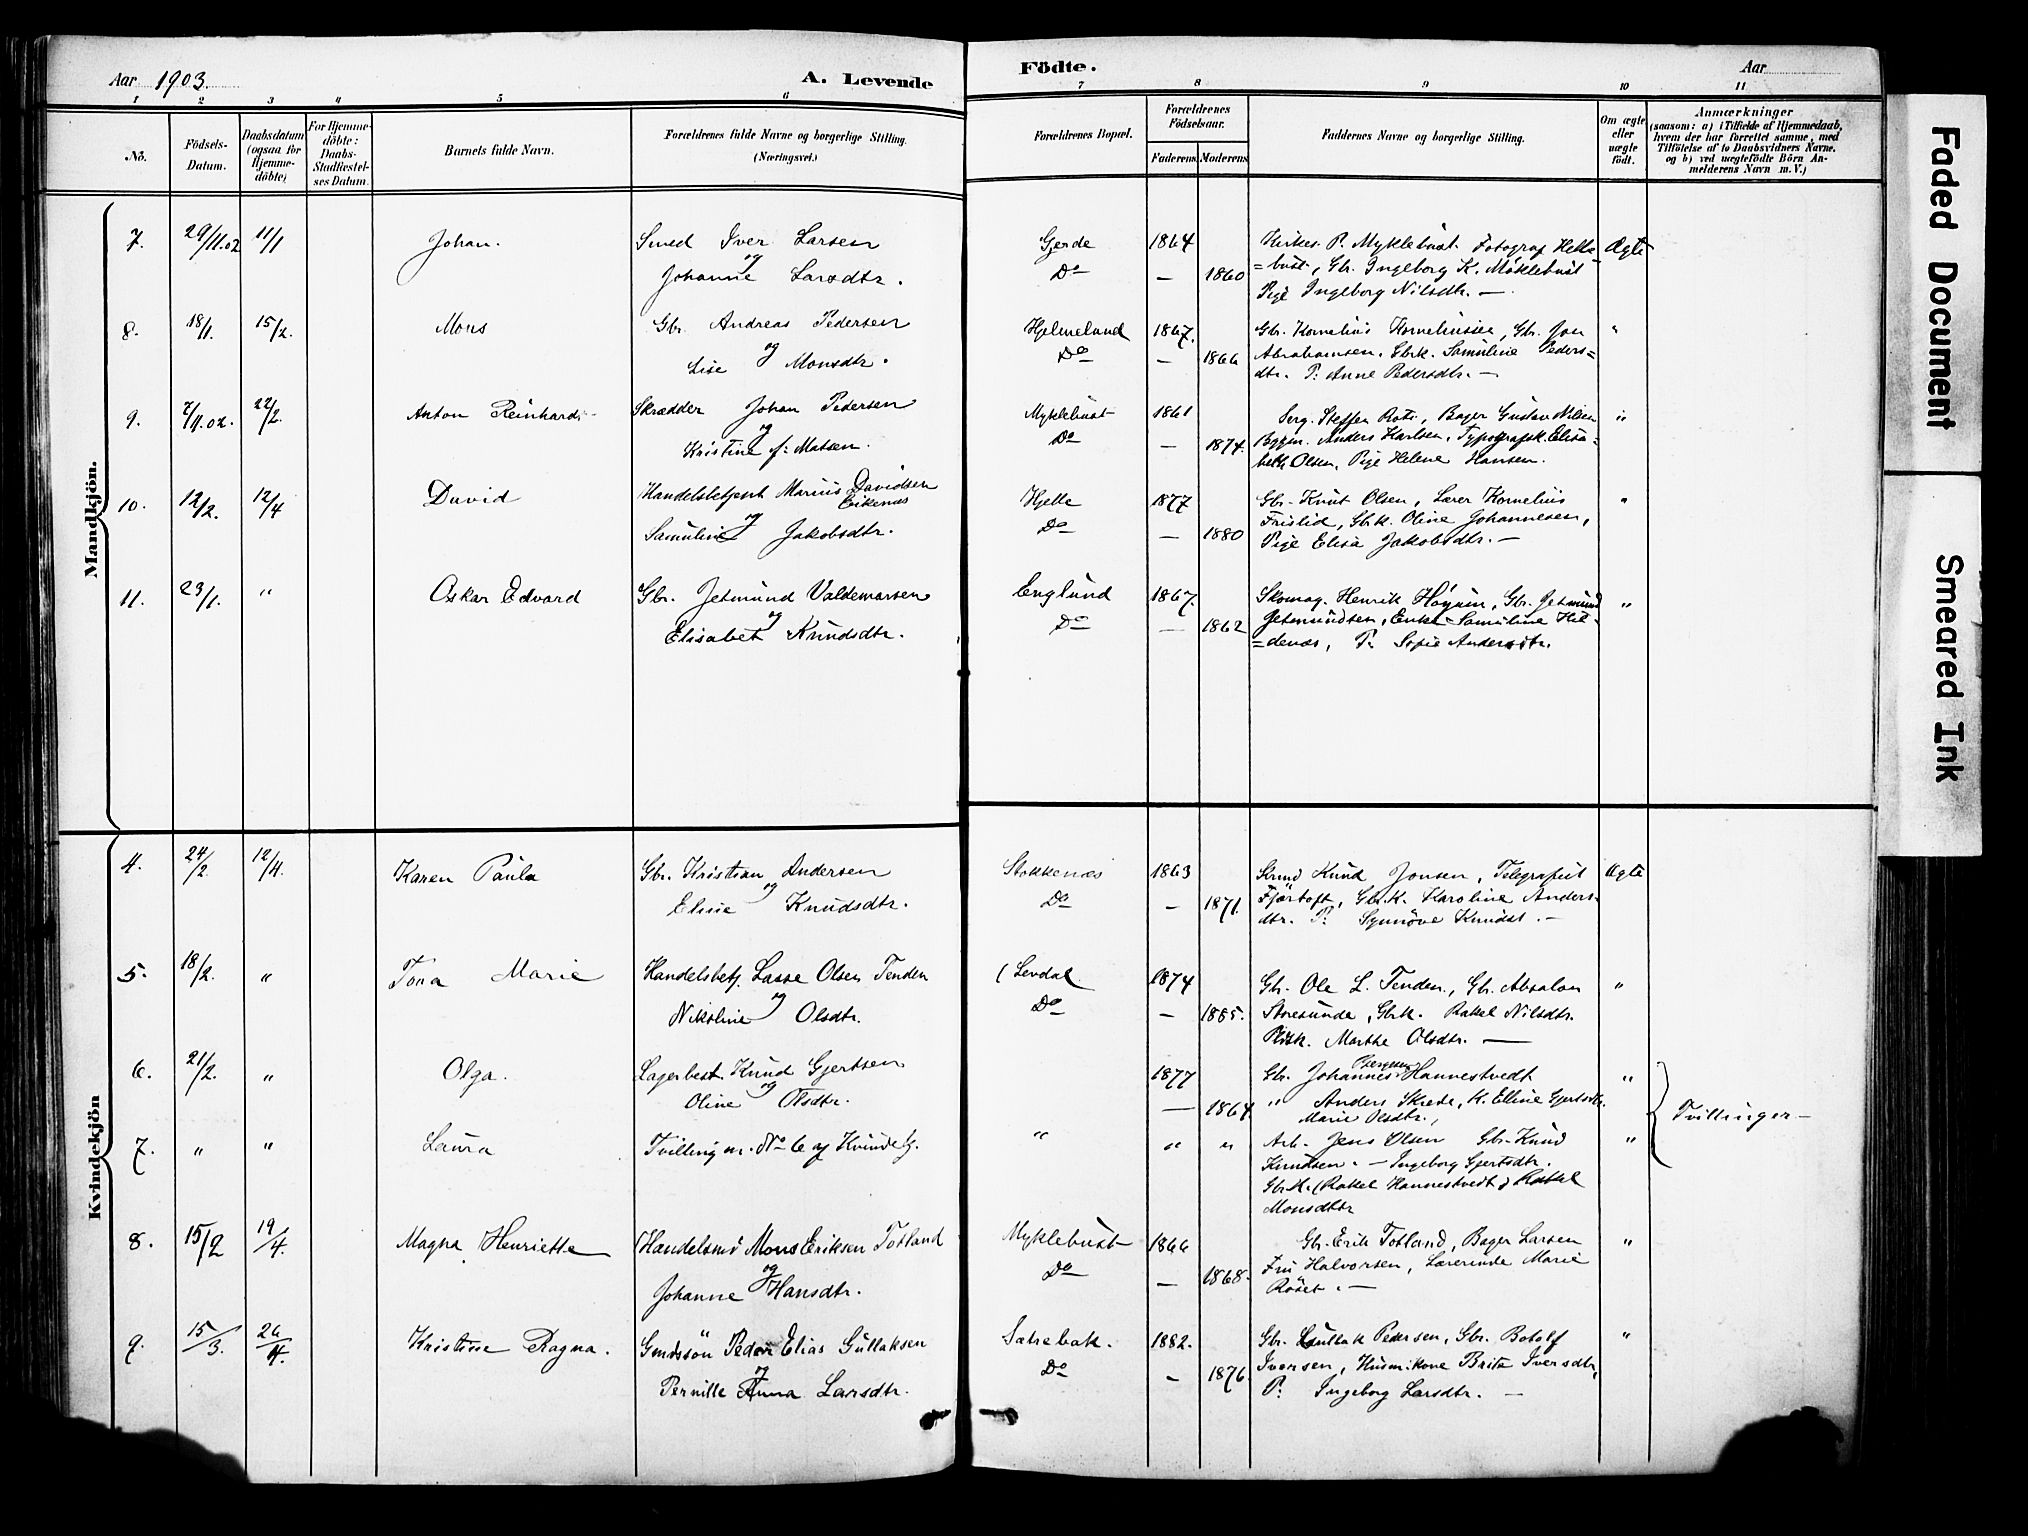 Aar 1903.
A. Levende
Födte.
Aar
1 2 3 4 5 6 7 8 9 10 11
No.
Födsels-
Datum.
Daabsdatum
(ogsaa for
Hjemme-
döbte)
For Hjemme-
döbte:
Daabs-
Stadfæstel-
ses Datum.
Barnets fulde Navn.
Forældrenes fulde Navne og borgerlige Stilling.
(Næringsvei.)
Forældrenes Bopæl.
Forældrenes
Födselsaar.
Faderens Moderens
Faddernes Navne og borgerlige Stilling.
Om ægte
eller
uægte
födt.
Anmærkninger
(saasom: a) i Tilfælde af Hjemmedaab,
hvem der har forrettet samme, med
Tilföielse af to Daabsvidners Navne.
og b) ved uægtefödte Börn An-
melderens Navn m. V.)
Mandkjön.
7. 29/11.02 11/1 Johan. Smed Iver Larsen Gjerde 1864 Kirkes. P. Myklebust Fotograf Helle Ægte
og
Johanne Larsdtr. Do — 1860 =bust, Gbr. Ingeborg K. Myklebust
Pige Ingeborg Nilsdtr. —
8. 18/1. 15/2. Mons Gbr. Andreas Pedersen Hjelmeland 1867. Gbr. Kornelius Korneliussen, Gbr. Jon "
og
Lise Monsdtr. Do — 1866 Abrahamsen. Gbrk. Samuline Peders=
dtr. P: Anne Pedersdtr. —
9. 7/11.02. 22/2. Anton Reinhard Skrædder Johan Pedersen Myklebust 1861 Serg. Steffen Roti, Bager Gustav Nilsen "
og
Kristine f: Matsen. Do — 1874. Byggm. Anders Karlsen, Typografsk. Elisa-
beth Olsen, Pige Helene Hansen.
10. 12/2. 12/4 David Handelsbetjent Marius Davidsen Hjelle 1877 Gbr. Knut Olsen, Lærer Kornelius "
Eikenæs
og
Samuline Jakobsdtr. Do — 1880 Frislid, Gbrk. Oline Johannesen,
Pige Elisa Jakobsdtr. —
11. 23/1. " Oskar Edvard Gbr. Jetmund Valdemarsen Englund 1867. Skomag. Henrik Höyum, Gbr. Jetmund "
og
Elisabet Knudsdtr. Do — 1862 Jetmundsen, Enke Samuline Hil=
=denæs, P. Sofie Andersdtr.
Kvindekjön
4. 24/2. 12/4. Karen Paula Gbr. Kristian Andersen Stokkenæs 1863 Knud Jonsen, Telegrafist Ægte
og
Eline Knudsdtr. Do — 1871. Fjörtoft, Gbr.K. Karoline Anders-
dtr. P: Synnöve Knudsd. —
5. 18/2. " Tora Marie Handelsbetj. Lasse Olsen Tenden Levdal 1874 Gbr. Ole L. Tenden, Gbr. Absalon "
og
Nikoline Olsdtr. Do — 1885. Storesunde, Gbrk. Rakel Nilsdtr.
Marthe Olsdtr. —
6. 21/2. " Olga. Lagerbest. Knud Gjertsen 1877 Gbr. Johannes Hannestvedt "
og
Oline Olsdtr. — 1864 " Anders Skrede, K. Elline Gjertsdtr.
Marie Olsdtr.,
Tvillinger —
7. " " Laura Tvilling m. No 6 af Kvindekj. " " " Arb. Jens Olsen Gbr. Knud "
Knudsen. — Ingeborg Gjertsdtr.
Gbr.K. Rakel Hannestvedt, Rakel
Monsdtr
8. 15/2 19/4. Magna Henriette Handelsmd Mons Eriksen Totland Myklebust 1866 Gbr. Erik Totland, Bager Larsen "
og
Johanne Hansdtr. Do — 1868. Fru Halvorsen, Lærerinde Marie
Röset. —
9. 15/3. 26/4. Kristine Ragna. Gmdssön Peder Elias Gullaksen Satrebak. 1882. Gbr. Gullak Pedersen, Gbr. Botolf "
og
Pernille Anna Larsdtr. Do — 1876. Iversen, Husmkone Brita Iversdtr,
P: Ingeborg Larsdtr. —
Faded Document
Smeared Ink